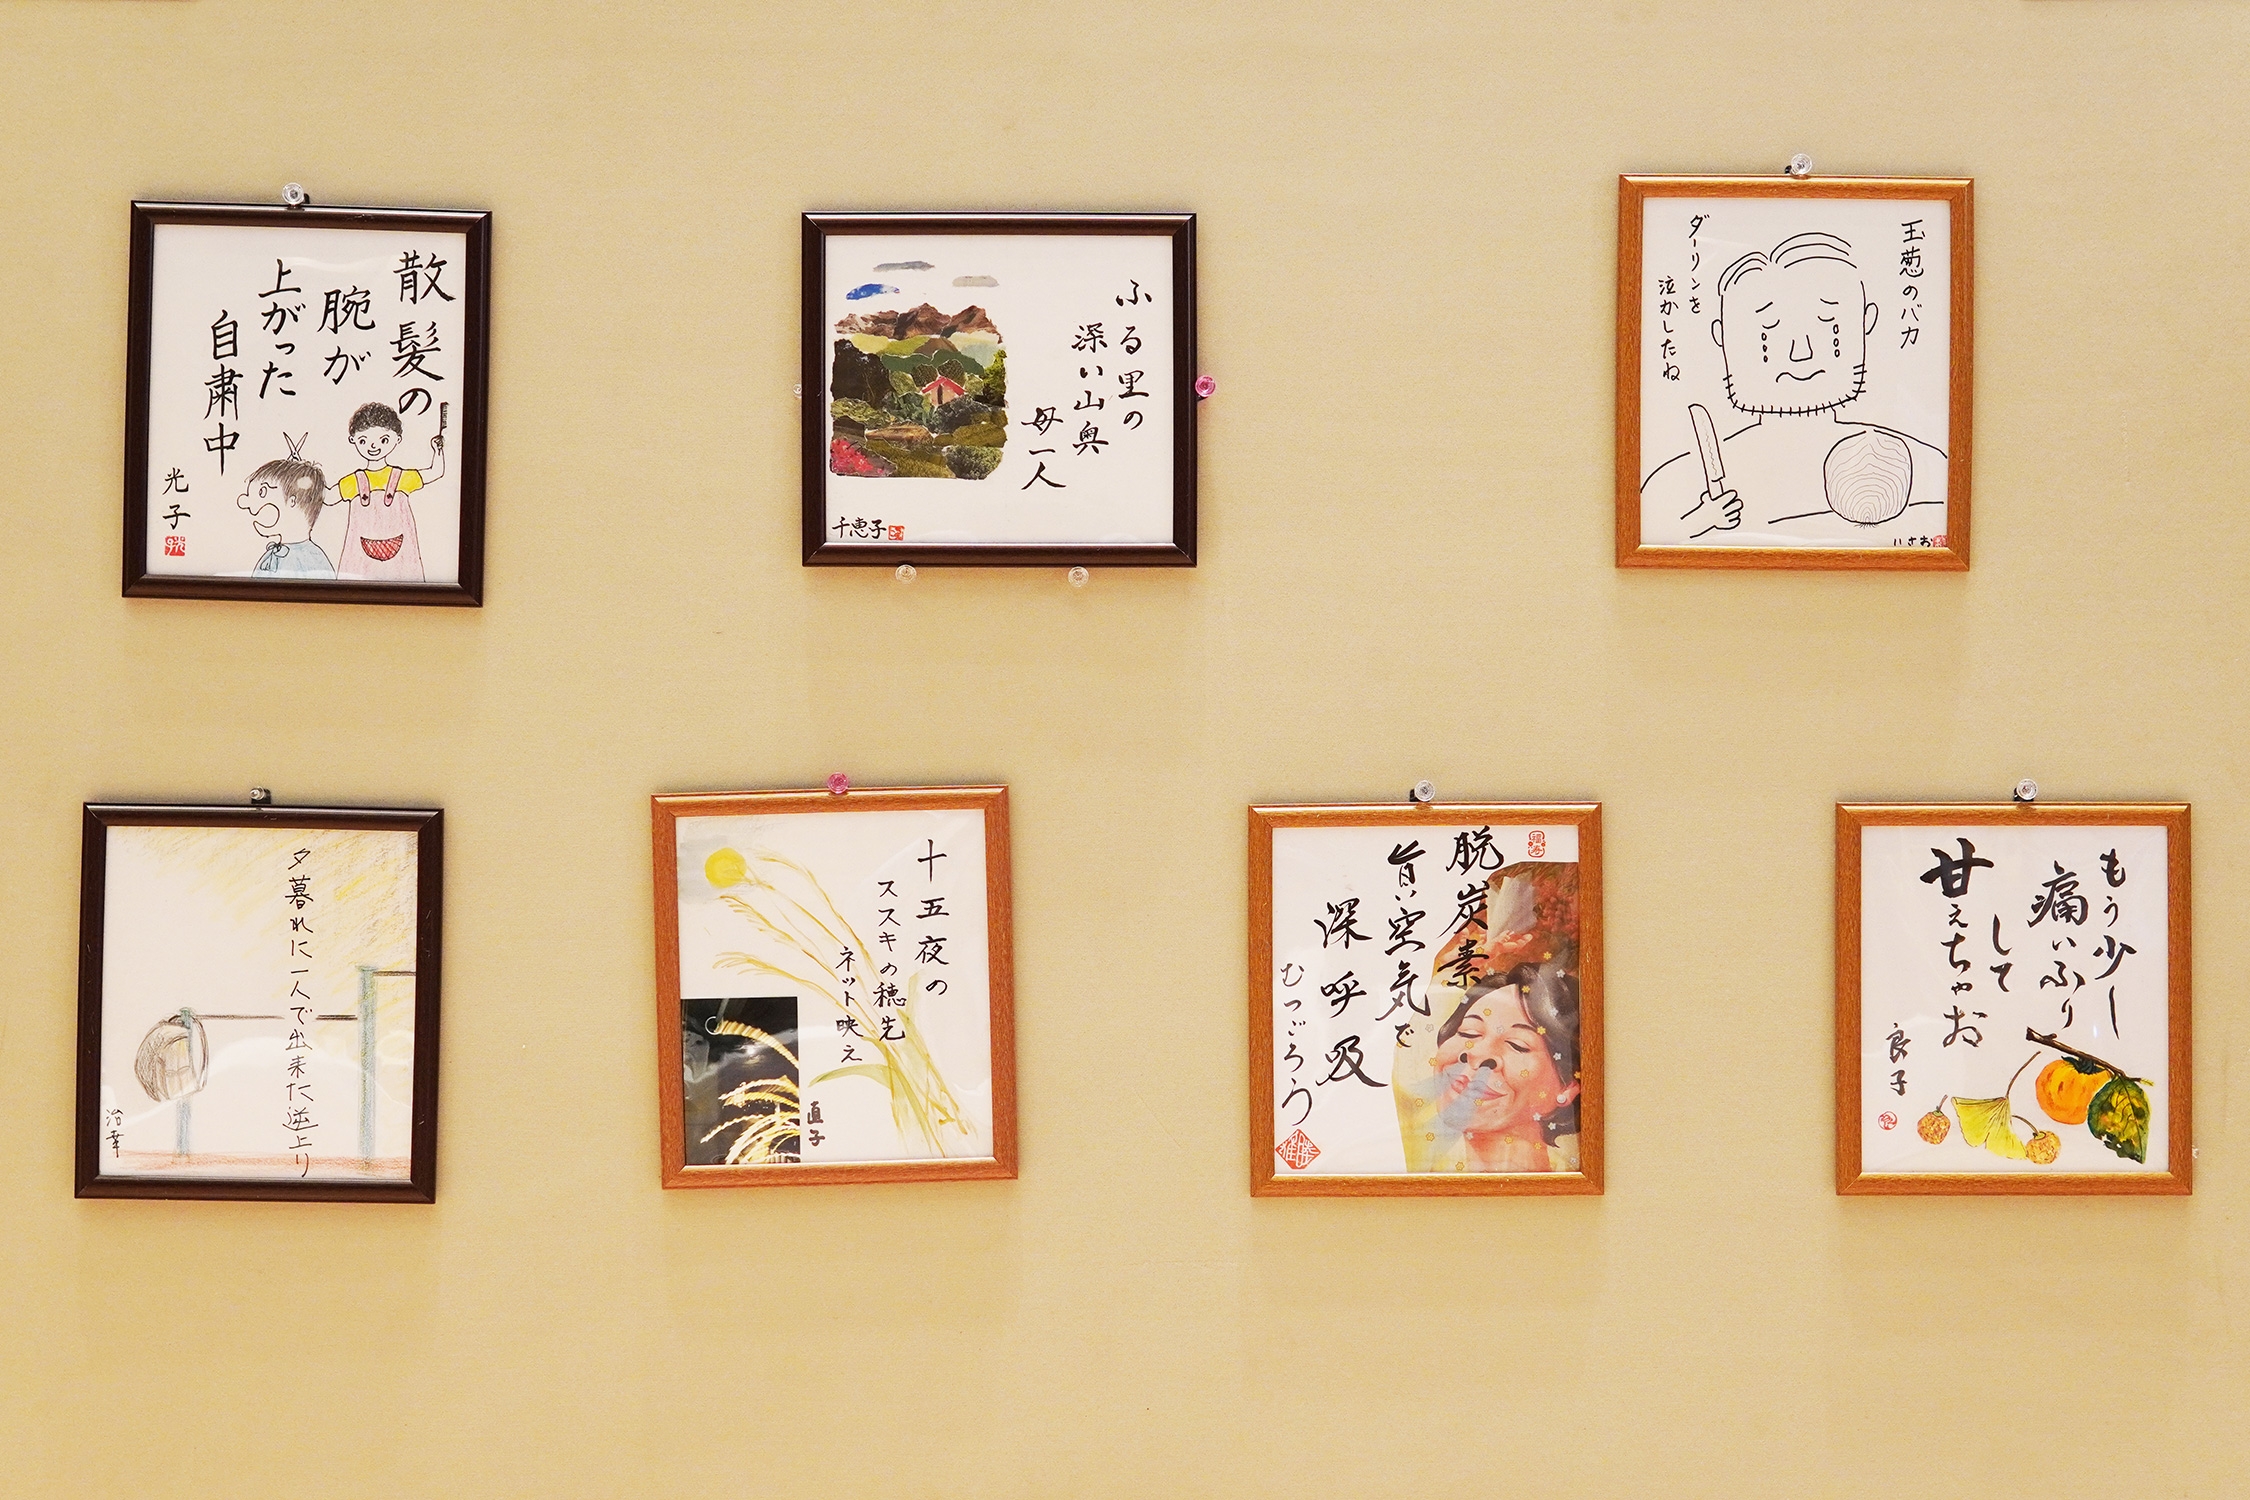 散髪の
腕が
上がった
自粛中
光子
ふる里の
深い山奥
母一人
千恵子
玉葱のバカ
ダーリンを
泣かしたね
いさお
夕暮れに一人で出来た逆上り
治幸
十五夜の
ススキの穂先
ネット映え
直子
脱炭素
旨い空気で
深呼吸
むつごろう
もう少し
痛いふり
して
甘えちゃお
良子